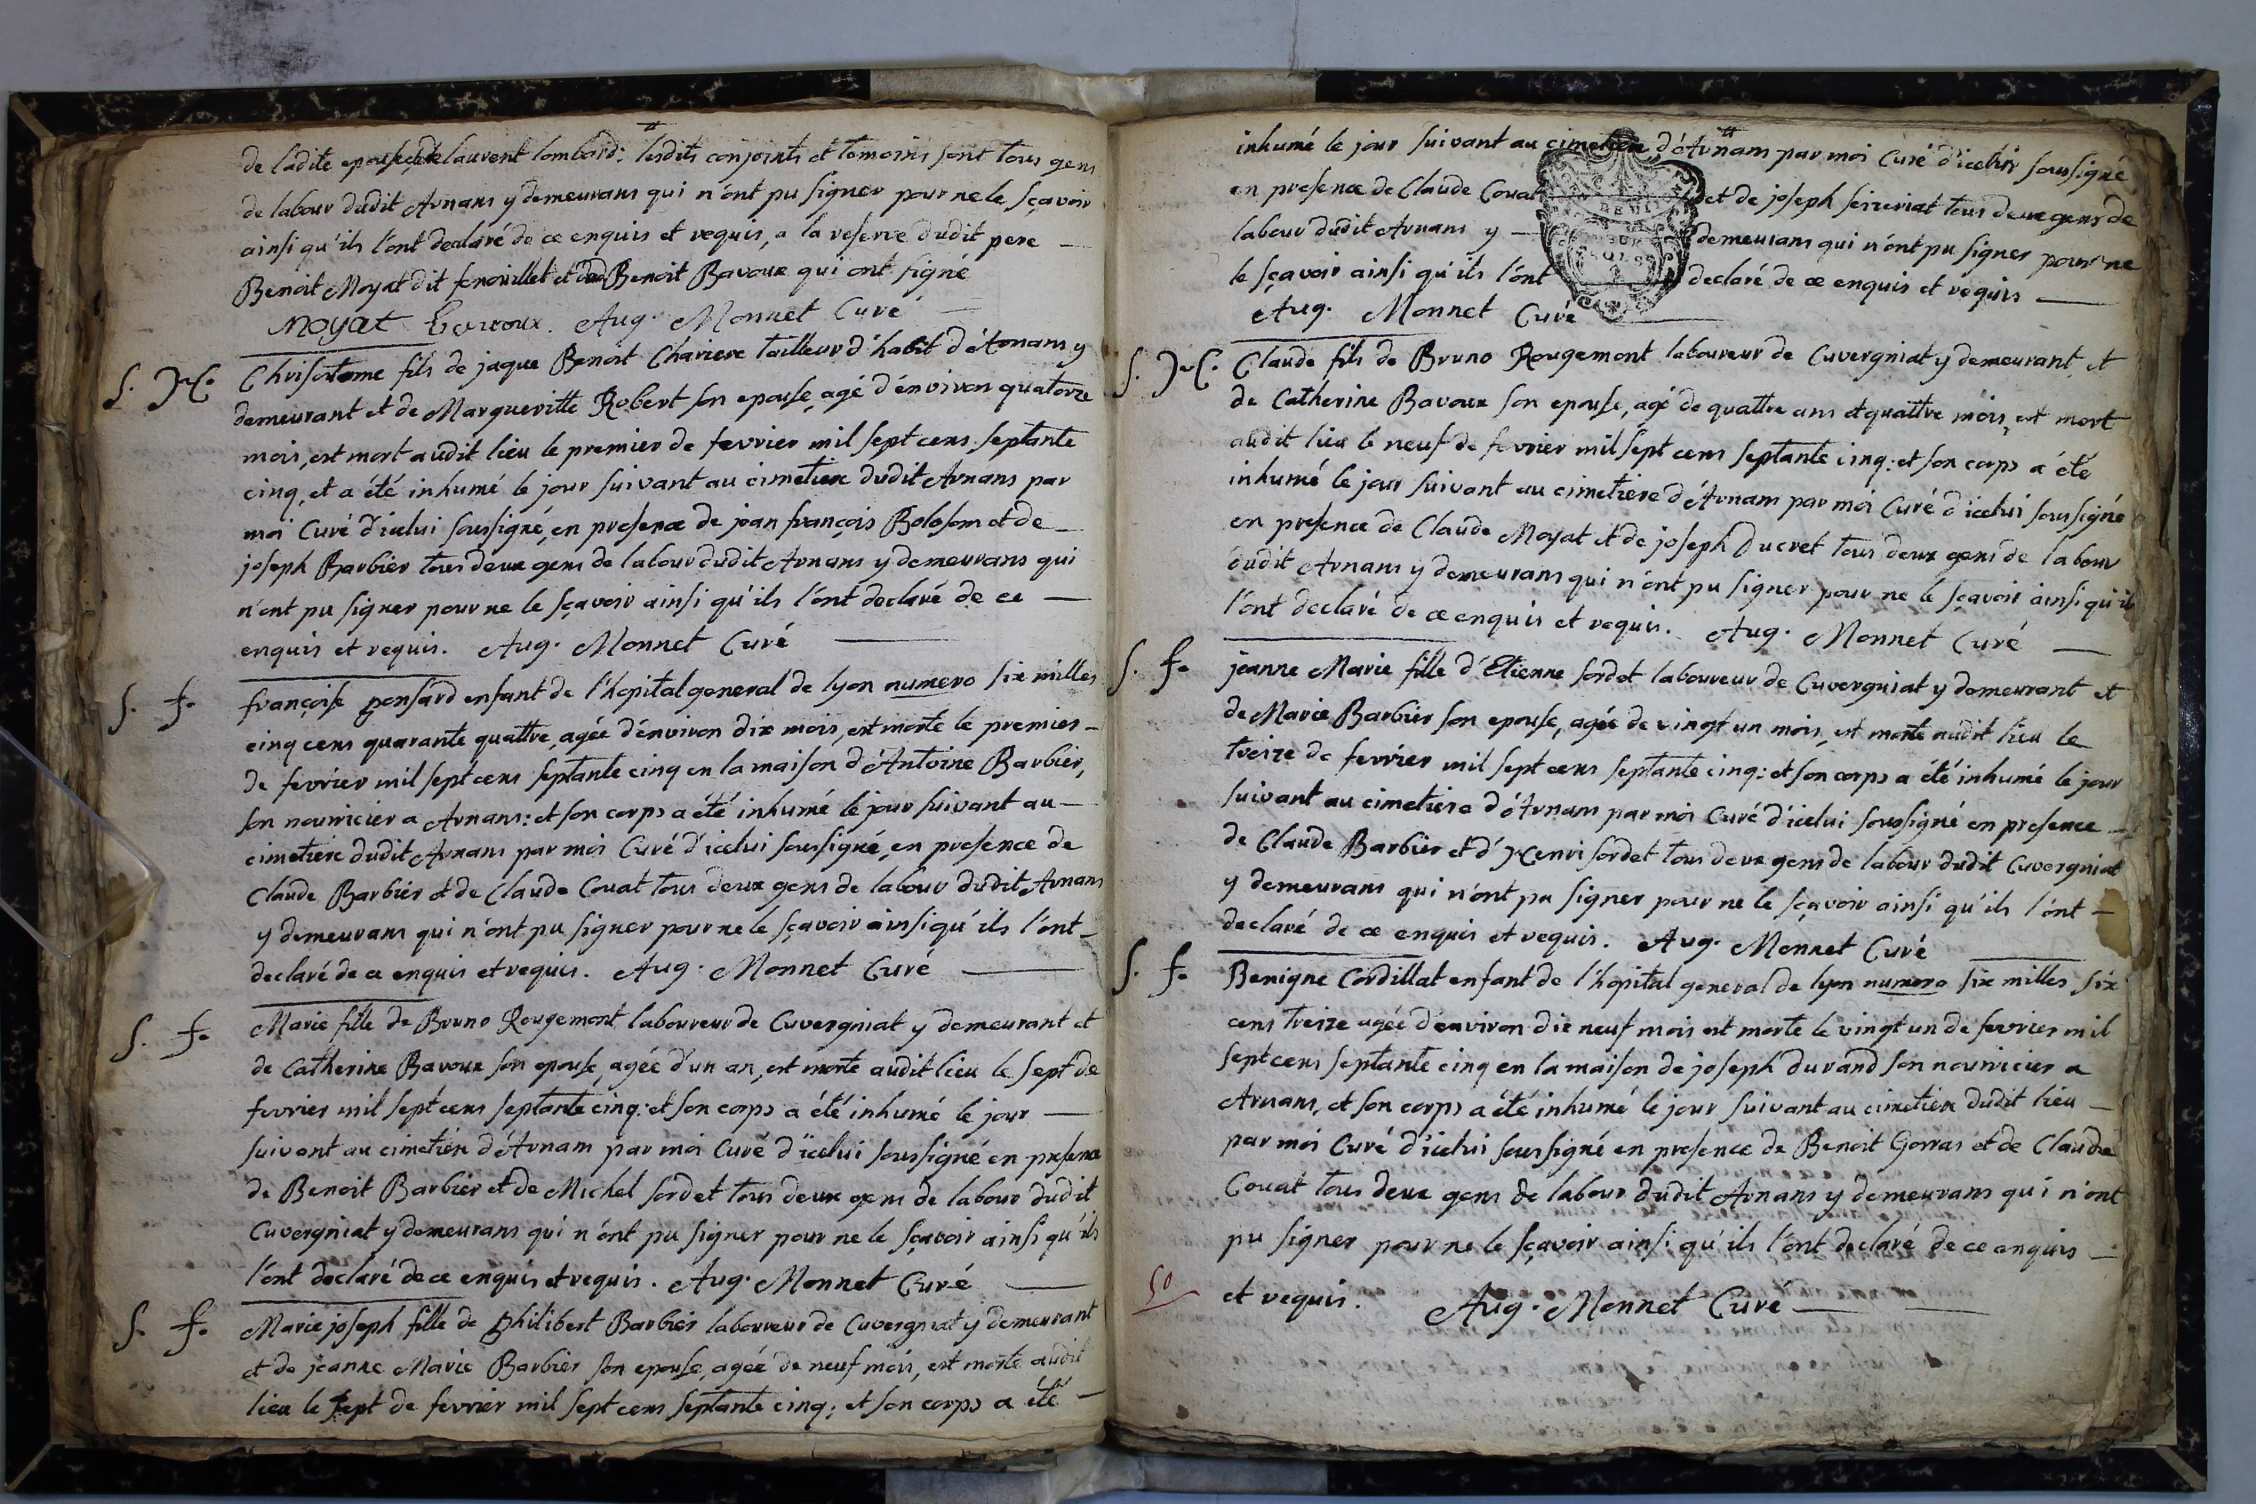 de ladite epouse, et de laurent lombard: lesdits conjoints et temoins sont tous gens
de labour dudit Arnans y demeurans qui n'ont pu signer pour ne le sçavoir
ainsi qu'ils l'ont declaré de ce enquis et requis, a la reserve dudit pere —
Benoit Moyat dit fenouillet et de Benoit Bavoux qui ont signé
Moyat Bavoux. Aug. Monnet Curé —
S. H. Chrisostome fils de jaque Benoit Chariere tailleur d'habit d'Arnans y
demeurant et de Margueritte Robert son epouse, agé d'environ quatorze
mois, est mort audit lieu le premier de fevrier mil sept cens septante
cinq, et a été inhumé le jour suivant au cimetiere dudit Arnans par
moi Curé d'icelui soussigné, en presence de jean françois Bolosom et de —
joseph Barbier tous deux gens de labour dudit Arnans y demeurans qui
n'ont pu signer pour ne le sçavoir ainsi qu'ils l'ont declaré de ce —
enquis et requis. Aug. Monnet Curé —
S. f. françoise ponsard enfant de l'hopital general de lyon numero six milles
cinq cens quarante quattre, agée d'environ dix mois, est morte le premier —
de fevrier mil sept cens septante cinq en la maison d'Antoine Barbier,
son nourricier a Arnans: et son corps a été inhumé le jour suivant au —
cimetiere dudit Arnans par moi Curé d'icelui soussigné, en presence de
Claude Barbier et de Claude Couat tous deux gens de labour dudit Arnans
y demeurans qui n'ont pu signer pour ne le sçavoir ainsi qu'ils l'ont —
declaré de ce enquis et requis. Aug. Monnet Curé —
S. f. Marie fille de Bruno Rougemont laboureur de Cuvergniat y demeurant et
de Catherine Bavoux son epouse, agée d'un an, est morte audit lieu le sept de
fevrier mil sept cens septante cinq: et son corps a été inhumé le jour —
suivant au cimetiere d'Arnam par moi Curé d'icelui soussigné en presence
de Benoit Barbier et de Michel sordet tous deux gens de labour dudit
Cuvergniat y demeurans qui n'ont pu signer pour ne le sçavoir ainsi qu'ils
l'ont declaré de ce enquis et requis. Aug. Monnet Curé —
S. f. Marie joseph fille de philibert Barbier laboureur de Cuvergniat y demeurant
et de jeanne Marie Barbier son epouse, agée de neuf mois, est morte audit
lieu le sept de fevrier mil sept cens septante cinq; et son corps a été —
inhumé le jour suivant au cimetiere d'Arnam par moi Curé d'icelui soussigné
en presence de Claude Couat et de joseph seizeriat tous deux gens de
labour dudit Arnans y — demeurans qui n'ont pu signer pour ne
le sçavoir ainsi qu'ils l'ont declaré de ce enquis et requis —
Aug. Monnet Curé —
S. H. Claude fils de Bruno Rougemont laboureur de Cuvergniat y demeurant et
de Catherine Bavoux son epouse, agé de quattre ans et quattre mois, est mort
audit lieu le neuf de fevrier mil sept cens septante cinq: et son corps a été
inhumé le jour suivant au cimetiere d'Arnam par moi Curé d'icelui soussigné
en presence de Claude Moyat et de joseph Ducret tous deux gens de labour
dudit Arnans y demeurans qui n'ont pu signer pour ne le sçavoir ainsi qu'ils
l'ont declaré de ce enquis et requis. Aug. Monnet Curé —
S. f. jeanne Marie fille d'Etienne sordet laboureur de Cuvergniat y demeurant et
de Marie Barbier son epouse, agée de vingt un mois, est morte audit lieu le
treize de fevrier mil sept cens septante cinq: et son corps a été inhumé le jour
suivant au cimetiere d'Arnam par moi Curé d'icelui soussigné en presence —
de Claude Barbier et d'Henri sordet tous deux gens de labour dudit Cuvergniat
y demeurans qui n'ont pu signer pour ne le sçavoir ainsi qu'ils l'ont —
declaré de ce enquis et requis. Aug. Monnet Curé
S. f. Benigne Cordillat enfant de l'hopital general de lyon numero six milles six
cens treize agée d'environ dix neuf mois est morte le vingt un de fevrier mil
sept cens septante cinq en la maison de joseph durand son nourricier a
Arnans, et son corps a été inhumé le jour suivant au cimetiere dudit lieu —
par moi Curé d'icelui soussigné en presence de Benoit Gorras et de Claude
Couat tous deux gens de labour dudit Arnans y demeurans qui n'ont
pu signer pour ne le sçavoir ainsi qu'ils l'ont declaré de ce enquis —
50 et requis. Aug. Monnet Curé —